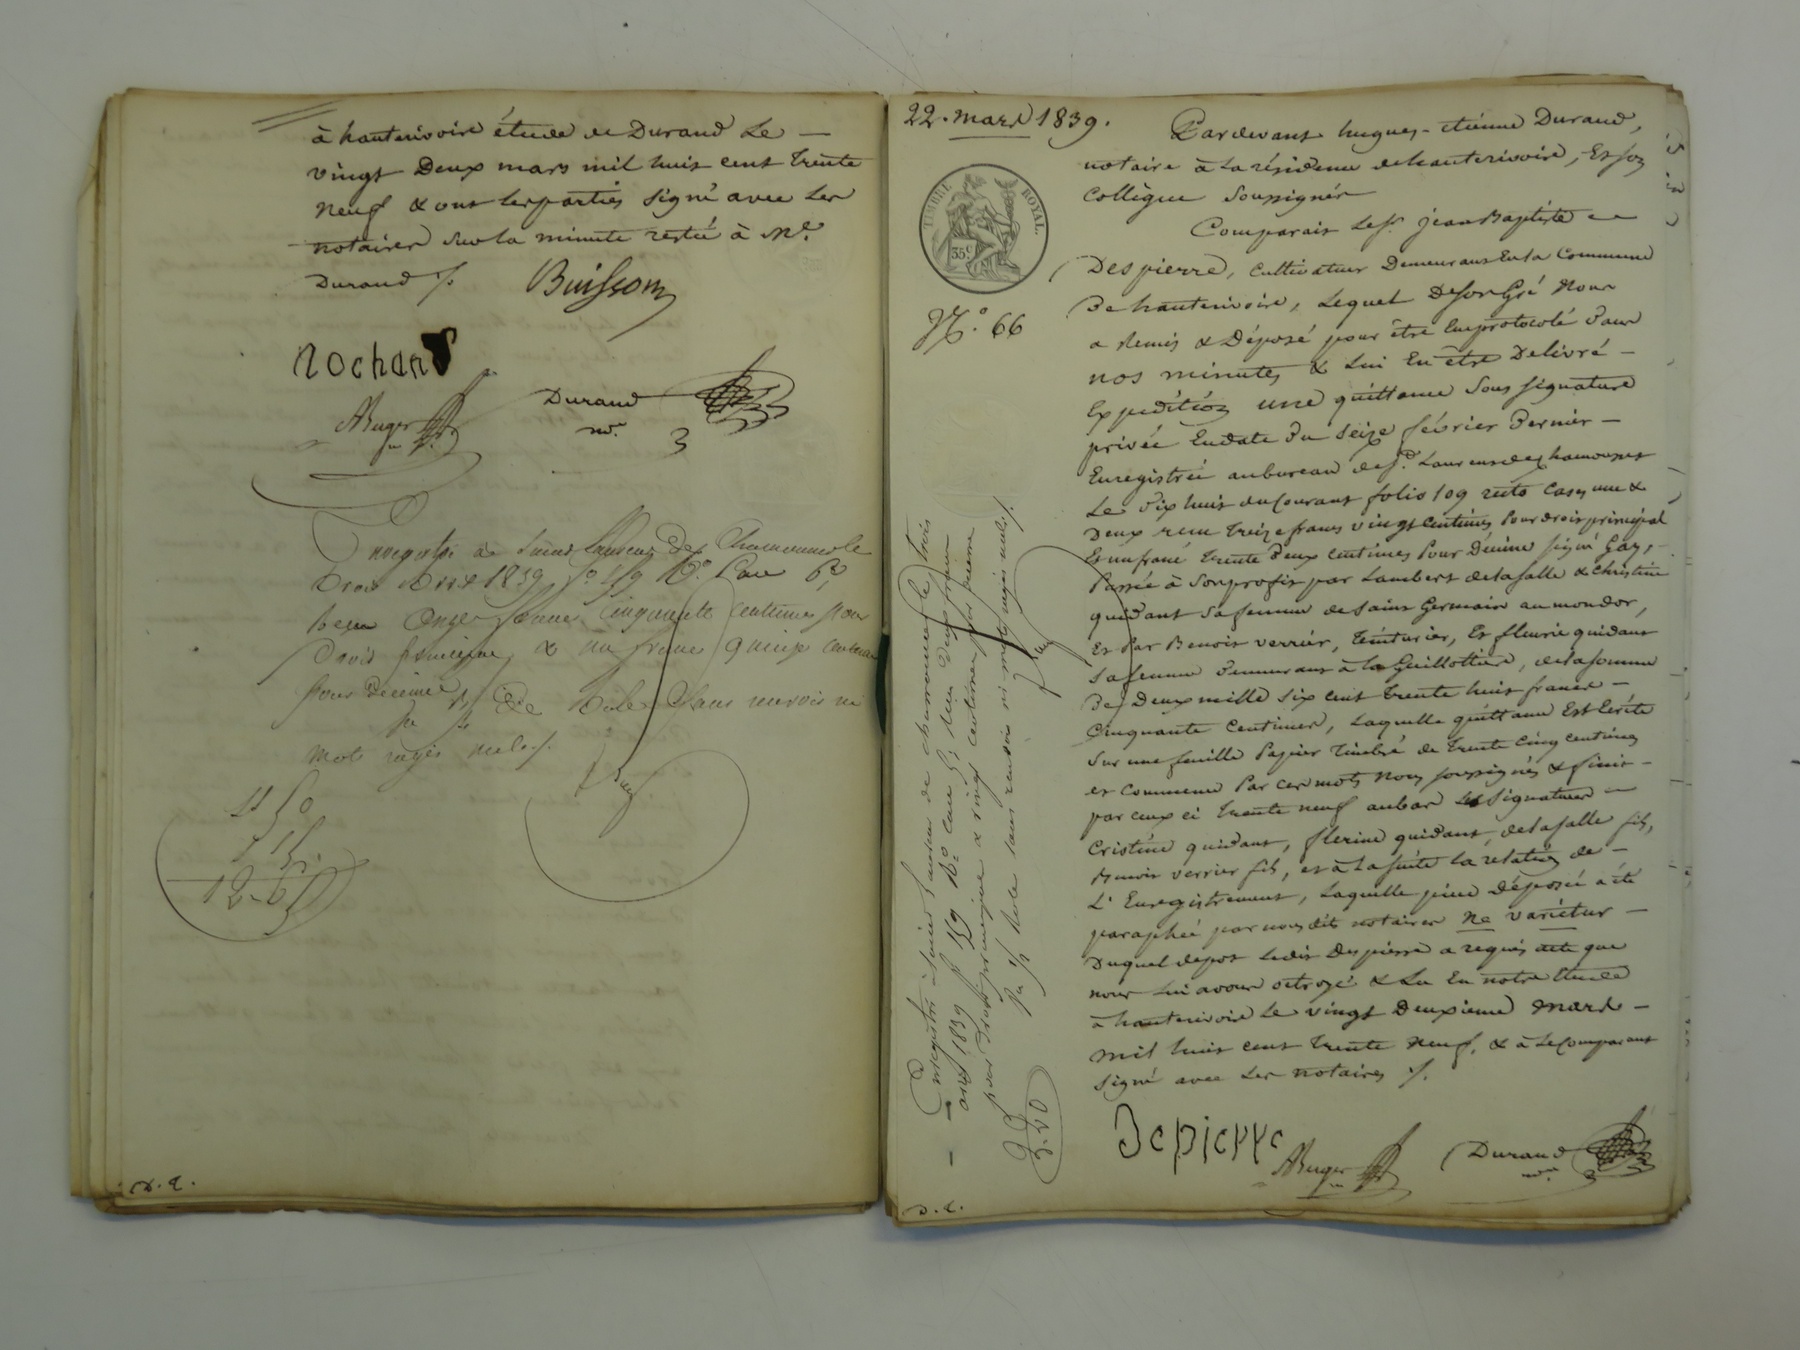 à hauterivoire étude de Durand Le —
vingt Deux mars mil huit cent trente
neuf & ont les parties signé avec les
notaires sur la minute restée à Me.
Durand ./.
Buisson
Rochand
ABuger
Durand
nre.
Enregistré à Saint Laurent de Chamousset le
trois avril 1839 fo 119 Ro Case 6
reçu Onze francs Cinquante centimes pour
Droit principal & un franc quinze centimes
pour Décime, sans renvois ni
mots rayés nuls ./.
11 50
1 15
12-65
D. d.
22. mars 1839.
TIMBRE ROYAL.
35 c
No. 66
Pardevant hugues-étienne Durand,
notaire à La résidence de hauterivoire, Et son
Collègue Soussignés
Comparait Le Sr. jean Baptiste
Despierre, Cultivateur Demeurant En la Commune
De hauterivoire, Lequel De son Gré Nous
a Remis & Déposé pour être Enprotocolé Dans
nos minutes & Lui En être Délivré —
Expédition une quittance Sous Signature
privée En date Du Seize février Dernier —
Enregistrée au bureau de St. Laurent de Chamousset
Le Dix huit du Courant folio 109 recto Cases une &
Deux reçu treize francs vingt Centimes Pour droit principal
Et un franc trente Deux centimes Pour Décime signé Gay, -
Passée à Son profit par Lambert delasalle & Christine
quidant sa femme de Saint Germain au mondor,
Et Par Benoit verrier, teinturier, Et fleurie quidant
Sa femme Demeurant à la Guillottière, de la somme
De Deux mille six cent trente huit francs —
Cinquante Centimes, Laquelle quittance Est Ecrite
Sur une feuille Papier timbré de trente cinq centimes
et Commence Par ces mots Nous soussignés & finit —
par ceux ci trente neuf au bas Les Signatures
Cristine quidant, flerine quidant, delasalle fils,
Benoit verrier fils, et à La suite La relation de —
L'Enregistrement, Laquelle pièce Déposée a été
paraphée par nous dits notaires Ne varietur —
Duquel dépot Ledit Despierre a requis acte que
nous Lui avons octroyé & Lu En notre Etude
à hauterivoire Le vingt Deuxième mars —
mil huit cent trente Neuf, & à Le Comparant
Signé avec Les notaires ./.
Depierre
ABuger
Durand
nre.
Enregistré à Saint Laurent de chamousset Le trois
avril 1839 fo 119 Ro case 5 reçu deux francs
pour droit principal & vingt centimes pour décime
sans renvois ni mots rayés nuls ./.
2.20
D. d.